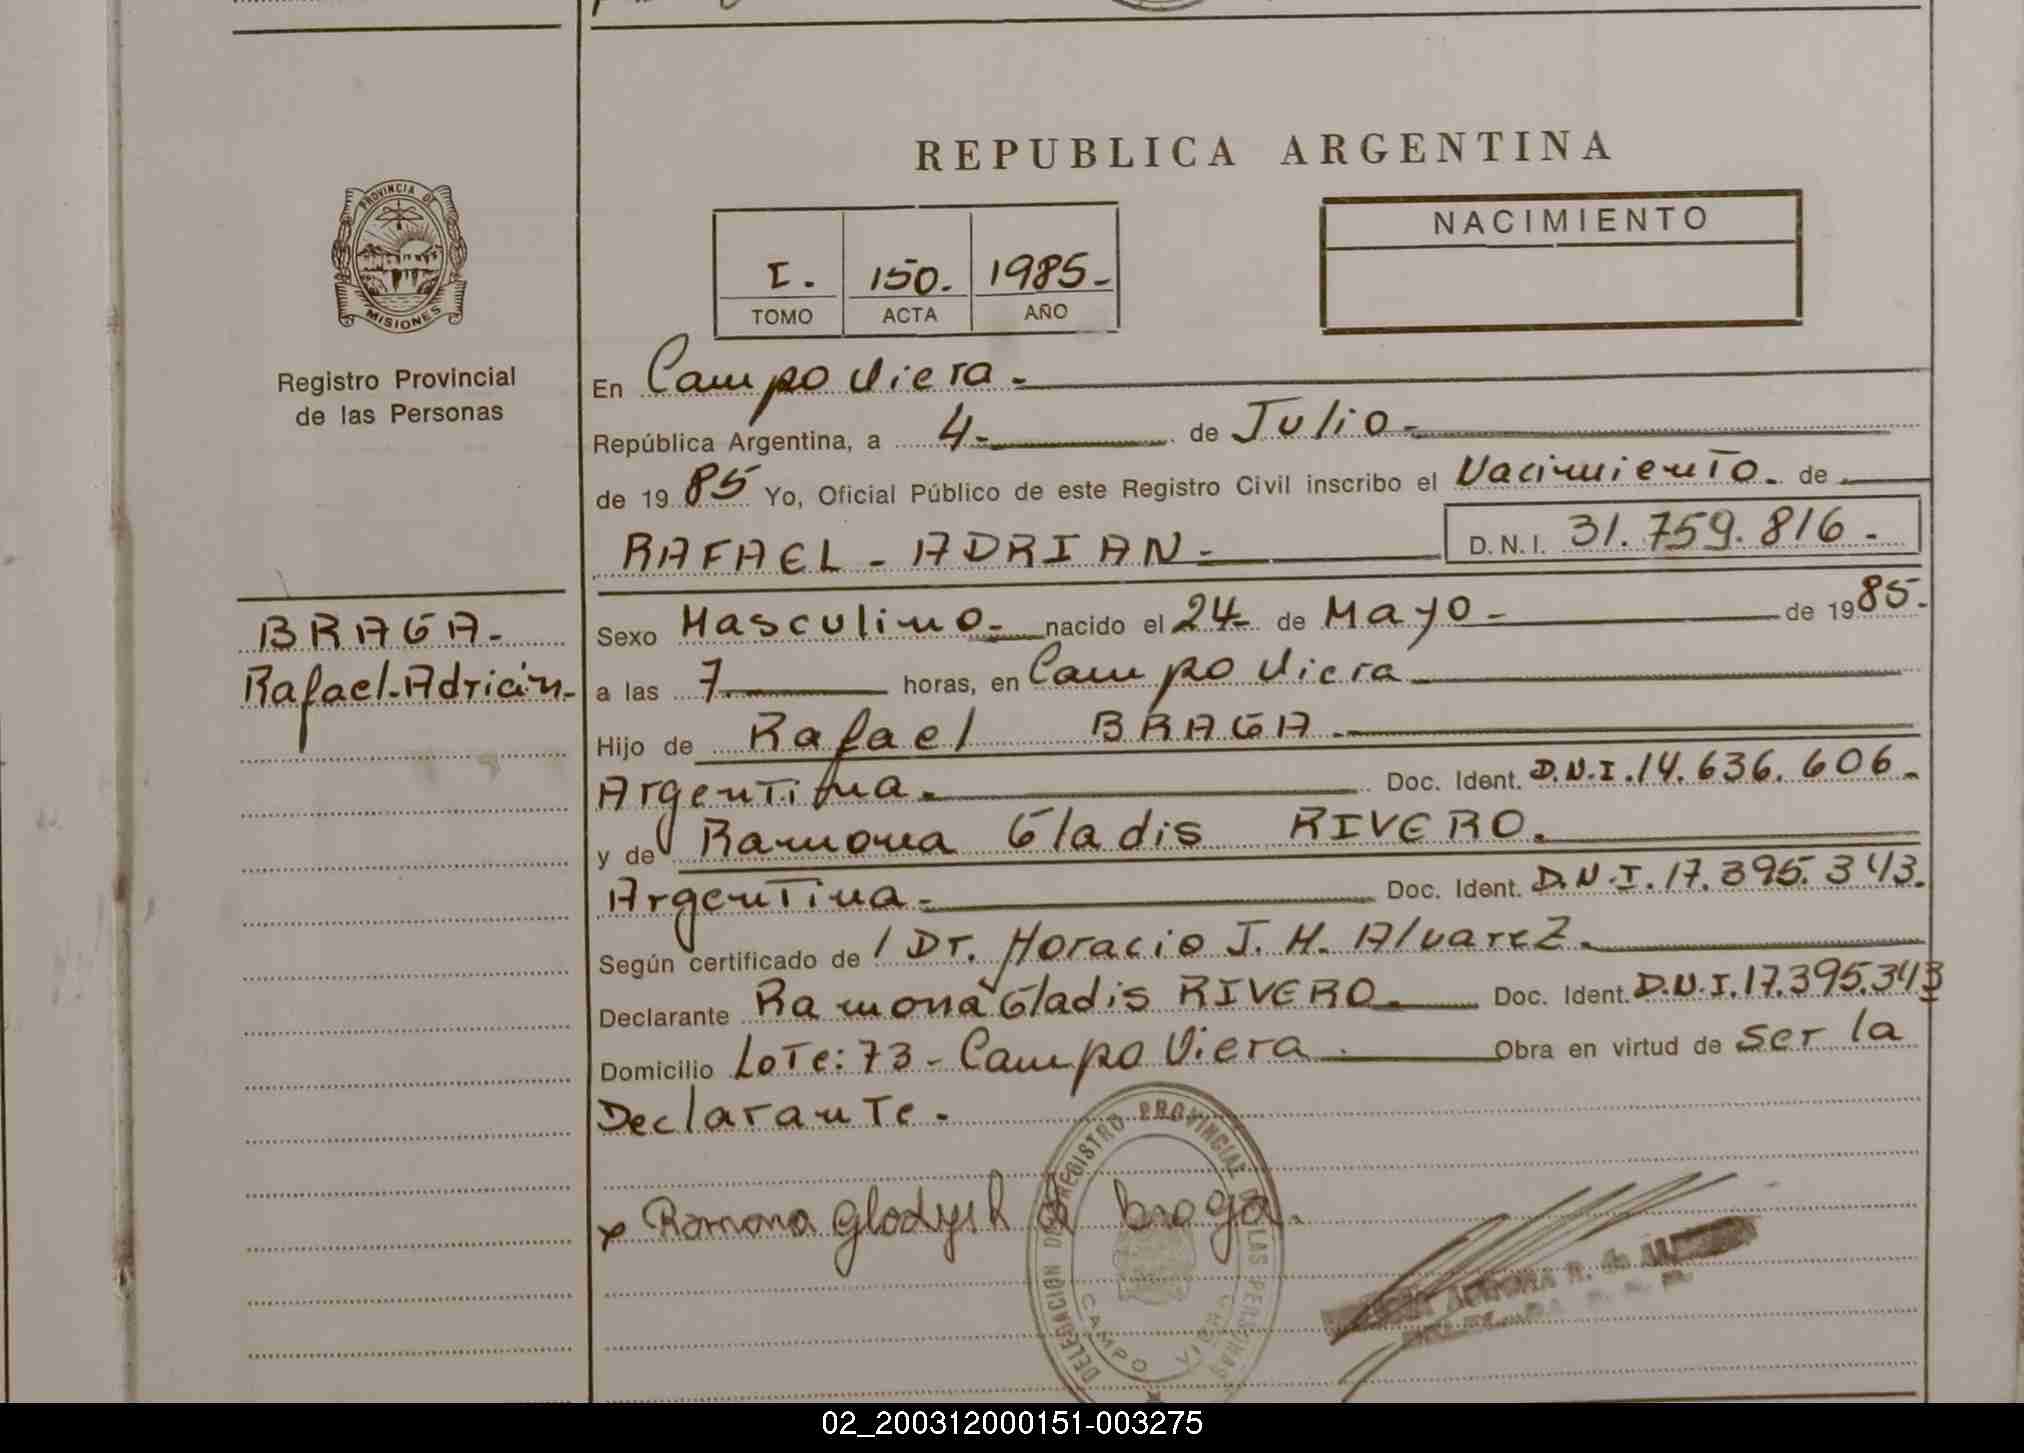 REPUBLICA ARGENTINA
PROVINCIA DE
MISIONES
Registro Provincial
de las Personas
BRAGA.-
Rafael-Adrián.-
I. 150. 1985.-
TOMO ACTA AÑO
NACIMIENTO
En Campo Viera.-
República Argentina, a 4.- de Julio.-
de 1985 Yo, Oficial Público de este Registro Civil inscribo el Nacimiento. de
RAFAEL - ADRIAN.- D.N.I. 31.759.816.-
Sexo Masculino.- nacido el 24 de Mayo.- de 1985.-
a las 7 horas, en Campo Viera
Hijo de Rafael BRAGA.-
Argentina.- Doc. Ident. D.N.I. 14.636.606.-
y de Ramona Gladis RIVERO.
Argentina.- Doc. Ident. D.N.I. 17.395.343.
Según certificado de / Dr. Horacio J. M. Alvarez.
Declarante Ramona Gladis RIVERO. Doc. Ident. D.N.I. 17.395.343
Domicilio Lote: 73 - Campo Viera Obra en virtud de ser la
Declarante.-
x Ramona braga.
DELEGACION DEL REGISTRO PROVINCIAL DE LAS PERSONAS
CAMPO VIERA
02_200312000151-003275